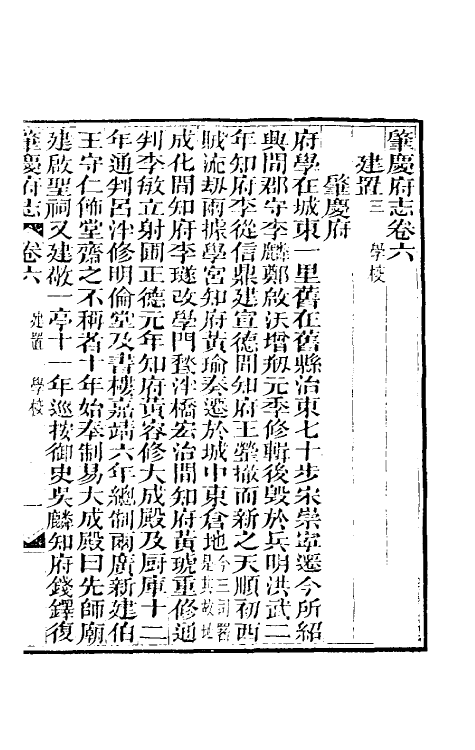 肇慶府志卷六
建置三 學校
肇慶府
府學在城東一里舊在舊縣治東七十步宋崇寧遷今所紹
興間郡守李麟鄭啟沃增剏元季修輯後毀於兵明洪武二
年知府李從信鼎建宣德間知府王罃撤而新之天順初西
賊流劫雨據學宮知府黃瑜奏遷於城中東倉地今三司署是其故地
成化間知府李璲改學門甃泮橋宏治間知府黃琥重修通
判李敏立射圃正德元年知府黃容修大成殿及厨庫十二
年通判呂泮修明倫堂及書樓嘉靖六年總制兩廣新建伯
王守仁飾堂齋之不稱者十年始奉制易大成殿曰先師廟
建啟聖祠又建敬一亭十一年巡按御史吳麟知府錢鐸復
肇慶府志 卷六 建置 學校 一